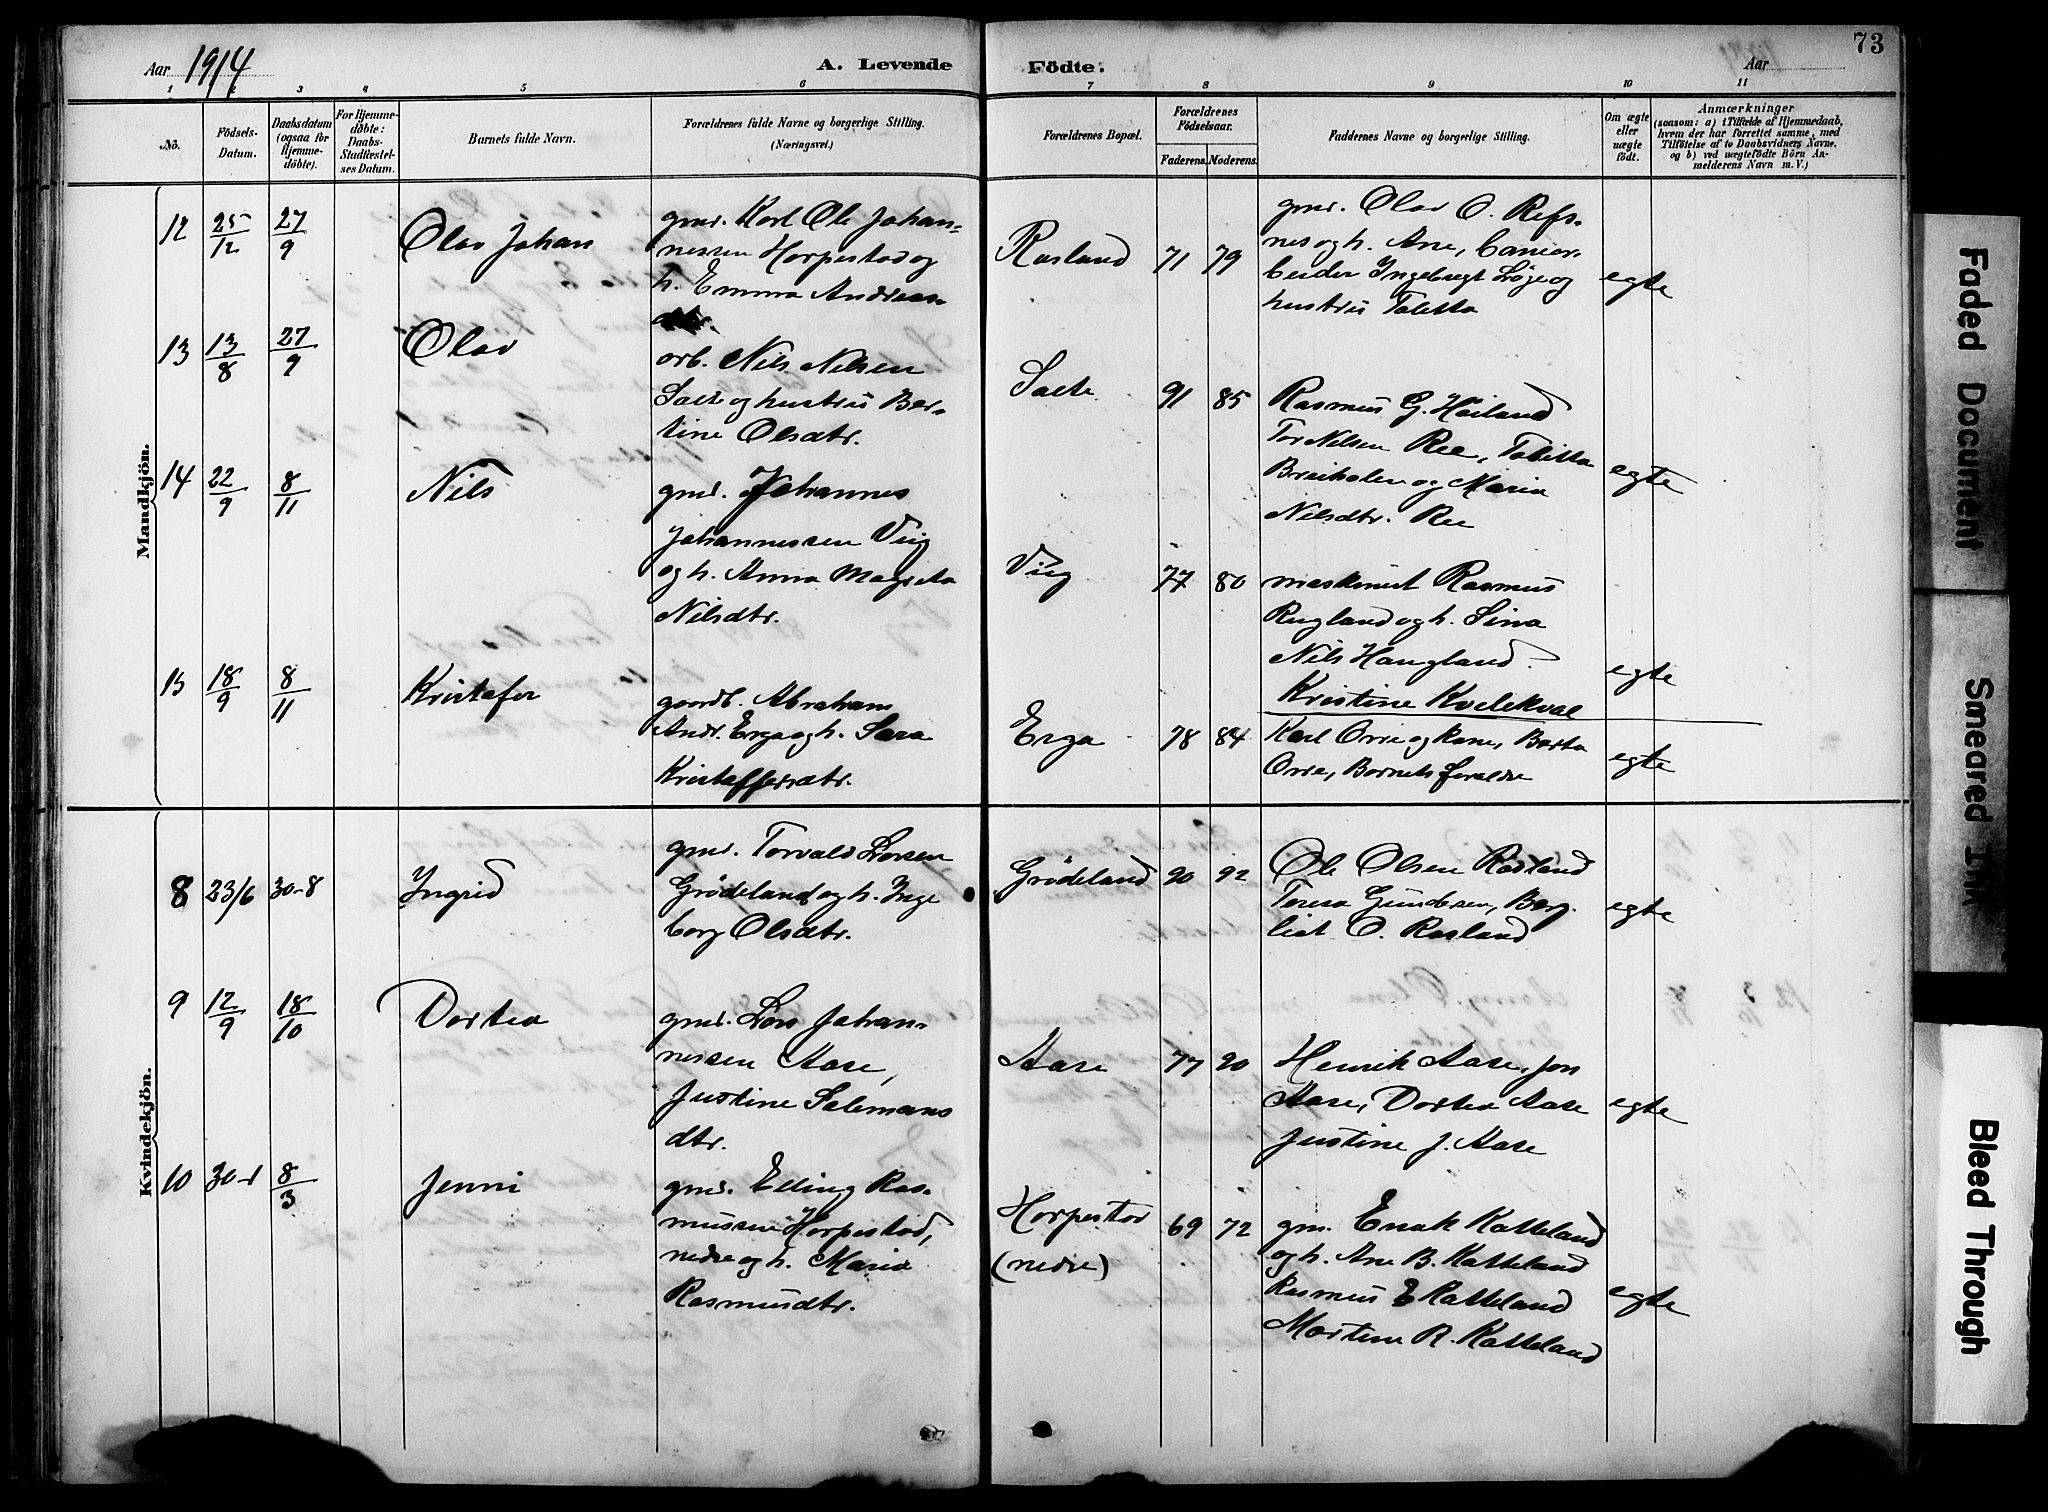 Aar 1914
A. Levende Födte.
Aar
73
1 2 3 4 5 6 7 8 9 10 11
No.
Födsels-
Datum.
Daabsdatum
(ogsaa for
Hjemme-
döbte).
For Hjemme-
döbte:
Daabs-
Stadfestel-
ses Datum.
Barnets fulde Navn.
Forældrenes fulde Navne og borgerlige Stilling.
(Næringsvei.)
Forældrenes Bopæl.
Forældrenes
Födselsaar.
Faderens. Moderens.
Faddernes Navne og borgerlige Stilling.
Om ægte
eller
uægte
födt.
Anmærkninger
(saasom: a) i Tilfælde af Hjemmedaab,
hvem der har forrettet samme, med
Tilföielse af to Daabsvidners Navne,
og b) ved uægtefödte Börn An-
melderens Navn m. V.)
Mandkjön.
12
25/12
27/9
Olav Johan
gmd. Karl Ole Johan-
nessen Horpestad og
h. Emma Andreas-
dtr.
Rosland
71 79
gmd. Olav O. Refs-
nes og h. Ane,
Ingebregt Lóge og
hustru Tabitta
egte
13
13/8
27/9
Olav
arb. Nils Nilsen
Salte og hustru Ber-
tine Olsdtr.
Salte
91 85
Rasmus G. Höiland
Tor Nilsen Ree, Tabitta
Breiholen og Maria
Nilsdtr. Ree
egte
14
22/9
8/11
Nils
gmd. Johannes
Johannessen Vig
og h. Anna Magreta
Nilsdtr.
Vig
77 80
maskinist Rasmus
Rugland og h. Sina
Nils Haugland
Kristine Kvelekval
egte
15
18/9
8/11
Kristofer
gaardb. Abraham
Andr. Erga og h. Sara
Kristoffersdtr.
Erga
78 84
Karl Orre og kone, Berta
Orre, Barnets foraldre
egte
Kvindekjön.
8
23/6
30-8
Ingrid
gmd. Torvald Larsen
Grödeland og h. Inge
borg Olsdtr.
Grödeland
90 92
Ole Olsen Rosland
Teresa Gundersen, Berg-
liot O. Rosland
egte
9
12/9
18/10
Dortea
gmd. Lars Johan-
nessen Aase,
Justine Salemons
dtr.
Aase
77 90
Henrik Aase, Jon
Aase, Dortea Aase
Justine J. Aase
egte
10
30-1
8/3
Jenni
gmd. Elling Ras-
mussen Horpestad,
nedre og h. Maria
Rasmusdtr.
Horpestad
(nedre)
69 72
gm. Enok Katteland
og h. Ane B. Katteland
Rasmus E Katteland
Martine R. Katteland
egte
Faded Document
Smeared Ink
Bleed Through